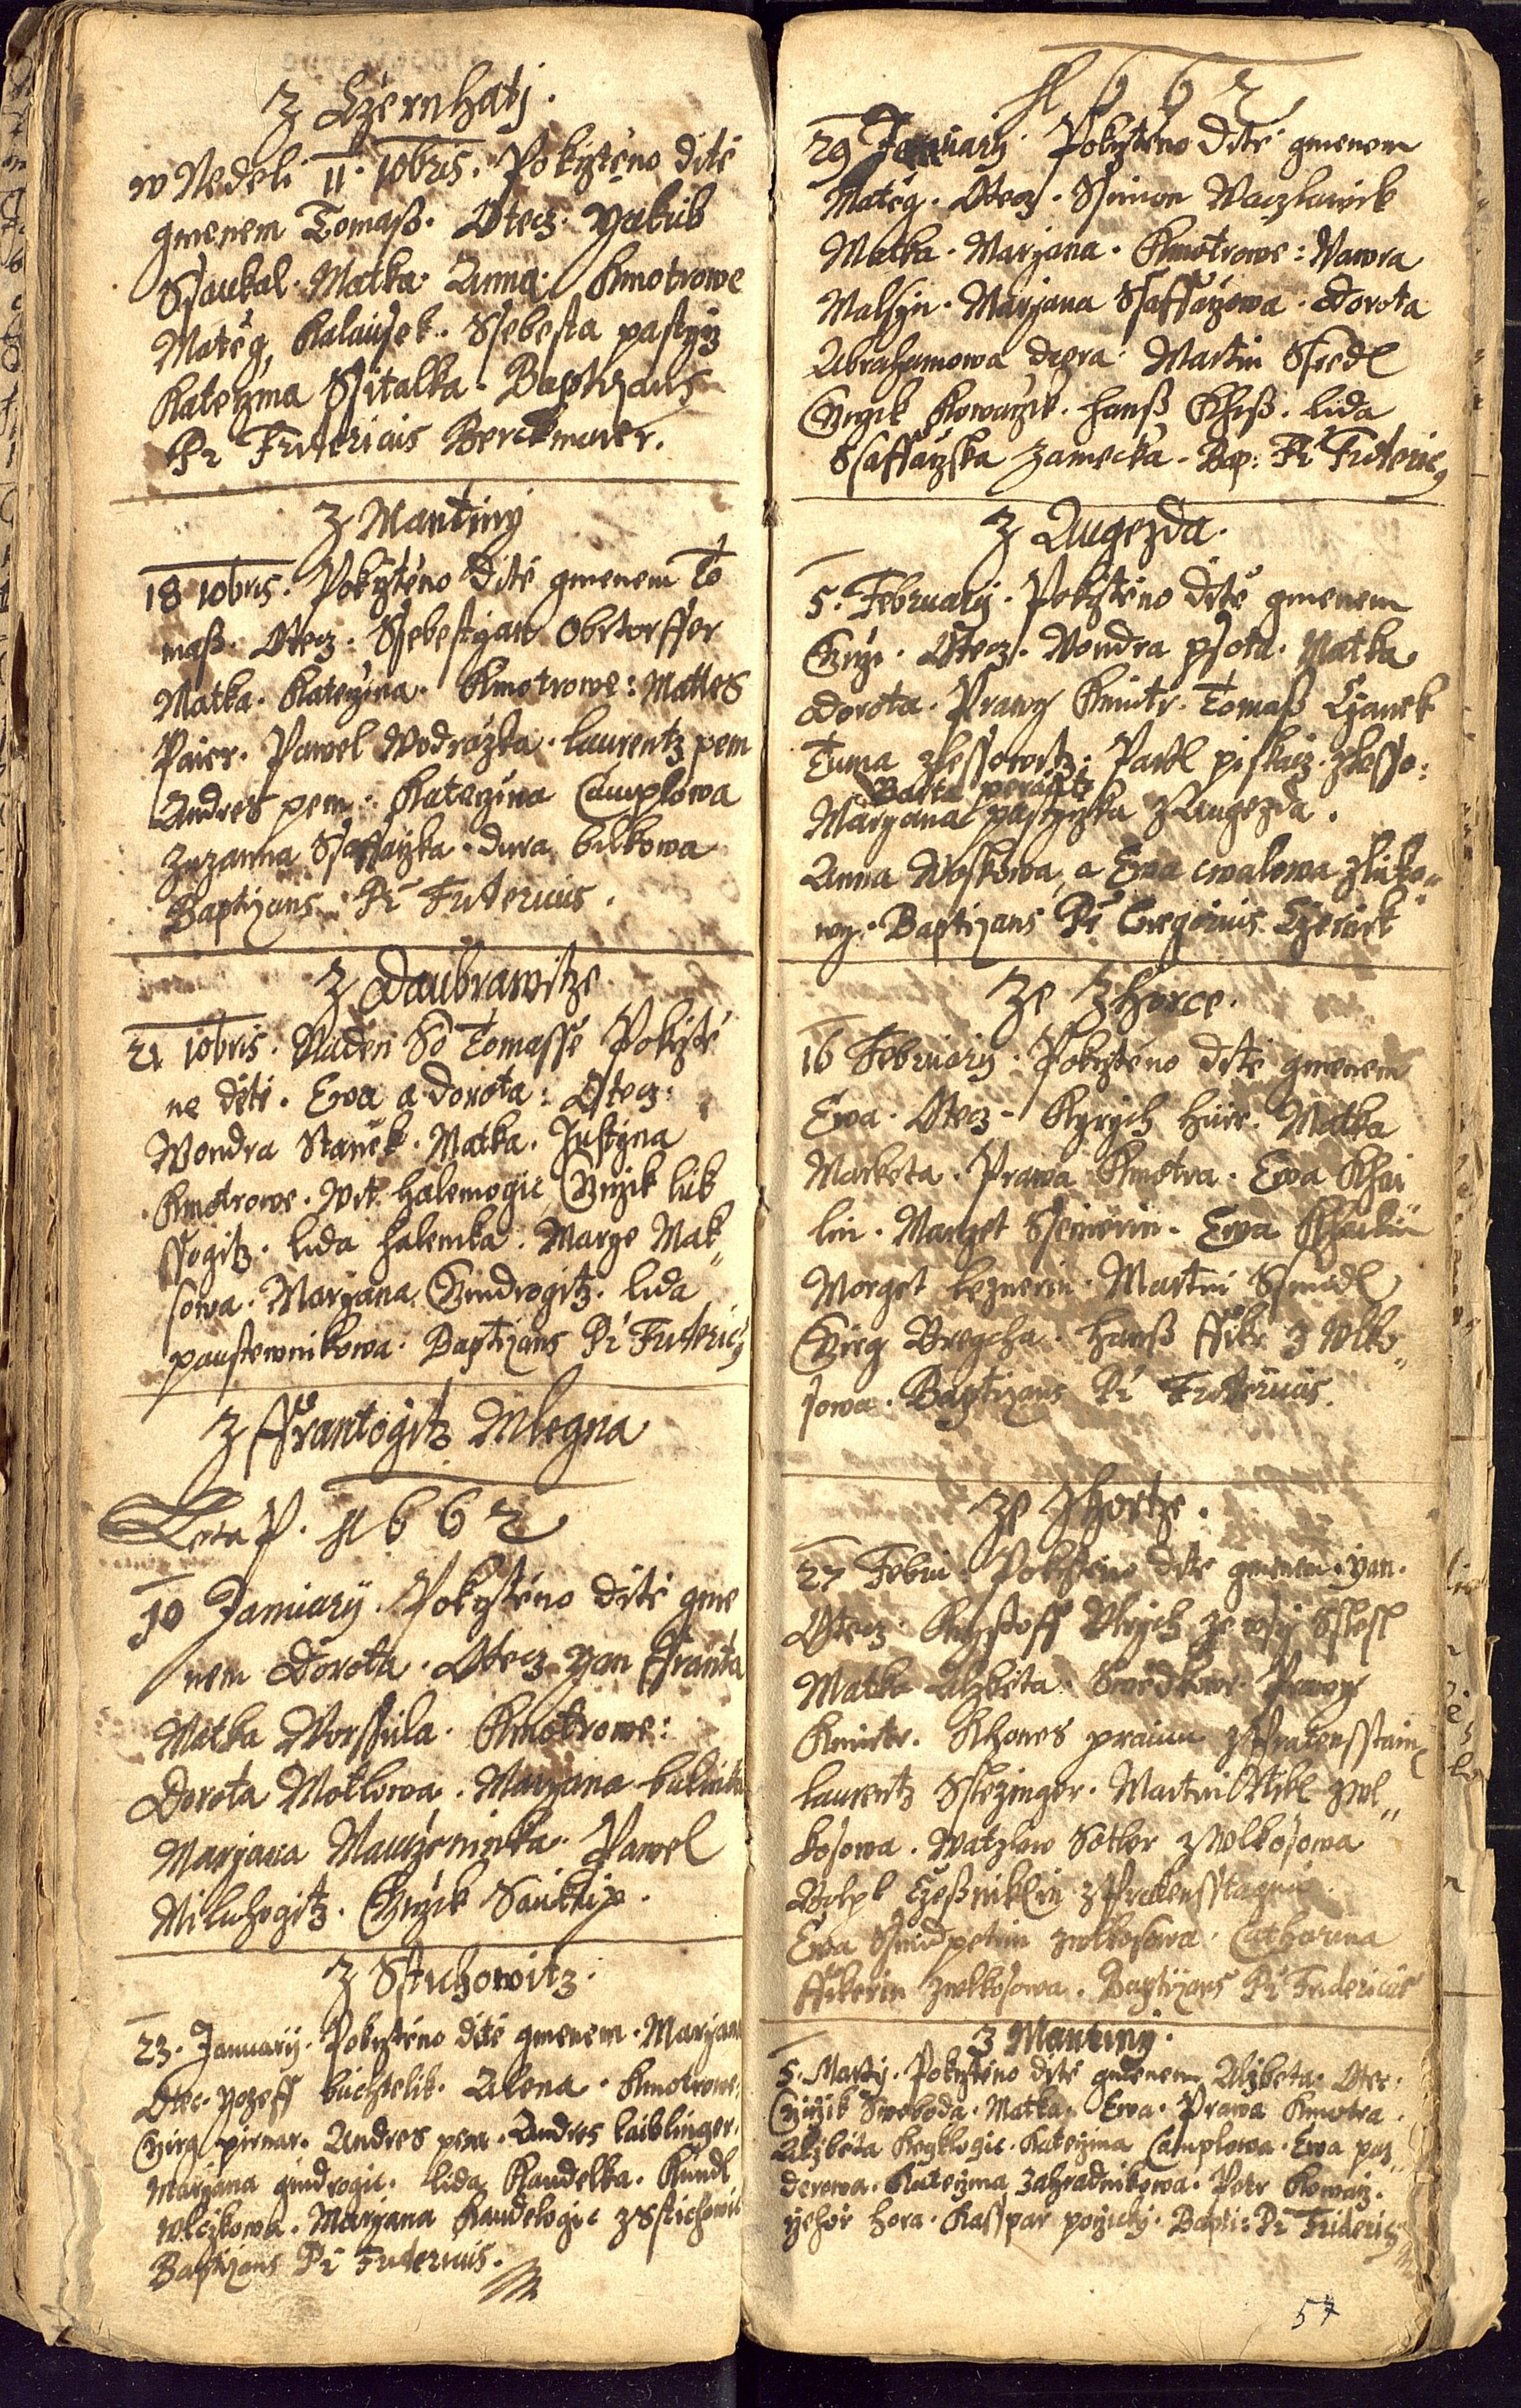 Z Czernhatj.
w Nedeli 11. 10bris. Pokrztěno dítě
gmenem Tomaß. Otecz. Yakub
Ssaukal. Matka. Anna. Kmotrowe
Matěg Kalausek. Ssebesta pastyrz
Katerzina Sspitalka. Baptizans
Pr Fridericus Berckmaier.
Z Mantiny
18 10bris. Pokrztěno dítě gmenem To
maß. Otecz. Ssebestyan Obrtorffer
Matka. Katerzina. Kmotrowe: Mattes
Paier. Pawel Wodrazka. laurentz pem
Andres pem. Katarzina Camplowa
Zuzanna Ssaffarzka. dura bilkowa
Baptizans Pr Fridericus.
Z Daubrawitze
21 10bris. Naden So Tomasse Pokrztě
ne děti. Ewa a dorota: Otecz:
Wondra Staněk. Matka. Justyna
Kmotrowe. Wit halemogic, Girzik lub
ssogitz. lida halemka. Marge Mak„
sowa. Maryana Gindrogitz. lida
paustewnikowa. Baptizans Pr Frideric9
Z ffrantogitz Mlegna
Leta P. 1662
10 January. Pokrztěno dítě gme
nem Dorota. Otecz Yan ffranta
Matka Worssula. Kmotrowe:
Dorota Motlowa. Maryana
Maryana Maurzeninka. Pawel
Miluhogitz. Girzik Saukup.
Z Stichowitz.
23. January. Pokrztěno dítě gmenem. Maryan
Otec. Yozeff buchtelik. Alena. Kmotrowe.
Girg pirnar. Andres pem. Andres laiblinger.
Maryana gindrogic. lida Kaudelka. Kundl
wlczkowa. Maryana Kaudelogic z Stichowic
Baptizans Pr Fridericus.
1662
29 January. Pokrztěno dítě gmenem
Matěg. Otecz. Ssimon Waczlawik
Matka. Maryana. Kmotrowe: Wawra
Malsyn. Maryana Ssaffarzowa. Dorota
Abrahamowa dcera. Martin Ssredl
Girzik Kowarzik. hanß Khrß. lida
Ssaffarzka zamecka. Bap: Pr Frideric9
Z Augezda.
5. February. Pokrztěno dítě gmenem
Girzi. Otecz. Wondra psota. Matka
dorota. Prawy Kmotr. Tomaß Czanek
Tuma zlessowitz. Pawl piskacz. zlesso:
Barta
Maryana pastyrzka z Augezda.
Anna Woskowa, a Ewa cwalowa zluko„
wy. Baptizans Pr Gregorius
Ze Zhorce.
16 February. Pokrztěno dítě gmenem
Ewa. Otecz. Kyrych hurr. Matka
Marketa. Prawa Kmotra. Ewa Khai
lin. Marget Ssteinerin. Ewa Khailin
Morget leznerin. Martin Ssmidl
Girg Bregcha. hanß ffikr z Wlko„
sowa. Baptizans Pr Fridericus.
Ze Zhortze.
27 Febru: Pokrztěno dítě gmenem. Yan.
Otecz. Krysstoff Vlrych ze wsy
Matka Alzběta. Swědkowe. Prawy
Kmotr. z Pratensstain
laurentz Sslezinger. Martin Vikl zwl„
kosowa. Watzlaw Sotler z Wlkosowa
z Pratensstagnu.
Ewa zwlkosowa. Catharina
ffikerin zwlkosowa. Baptizans Pr Fridericus
Z Mantiny.
5. Marty. Pokrztěno dítě gmenem Alzběta. Otec.
Girzik Swoboda. Matka. Ewa. Prawa Kmotra.
Alzběta Regklogic. Katerzina Camplowa. Ewa paz„
derowa. Katerzina Zahradnikowa. Petr Kowarz.
rzehor hora. Kasspar porzicky. Bapti: Pr Frideric9
57